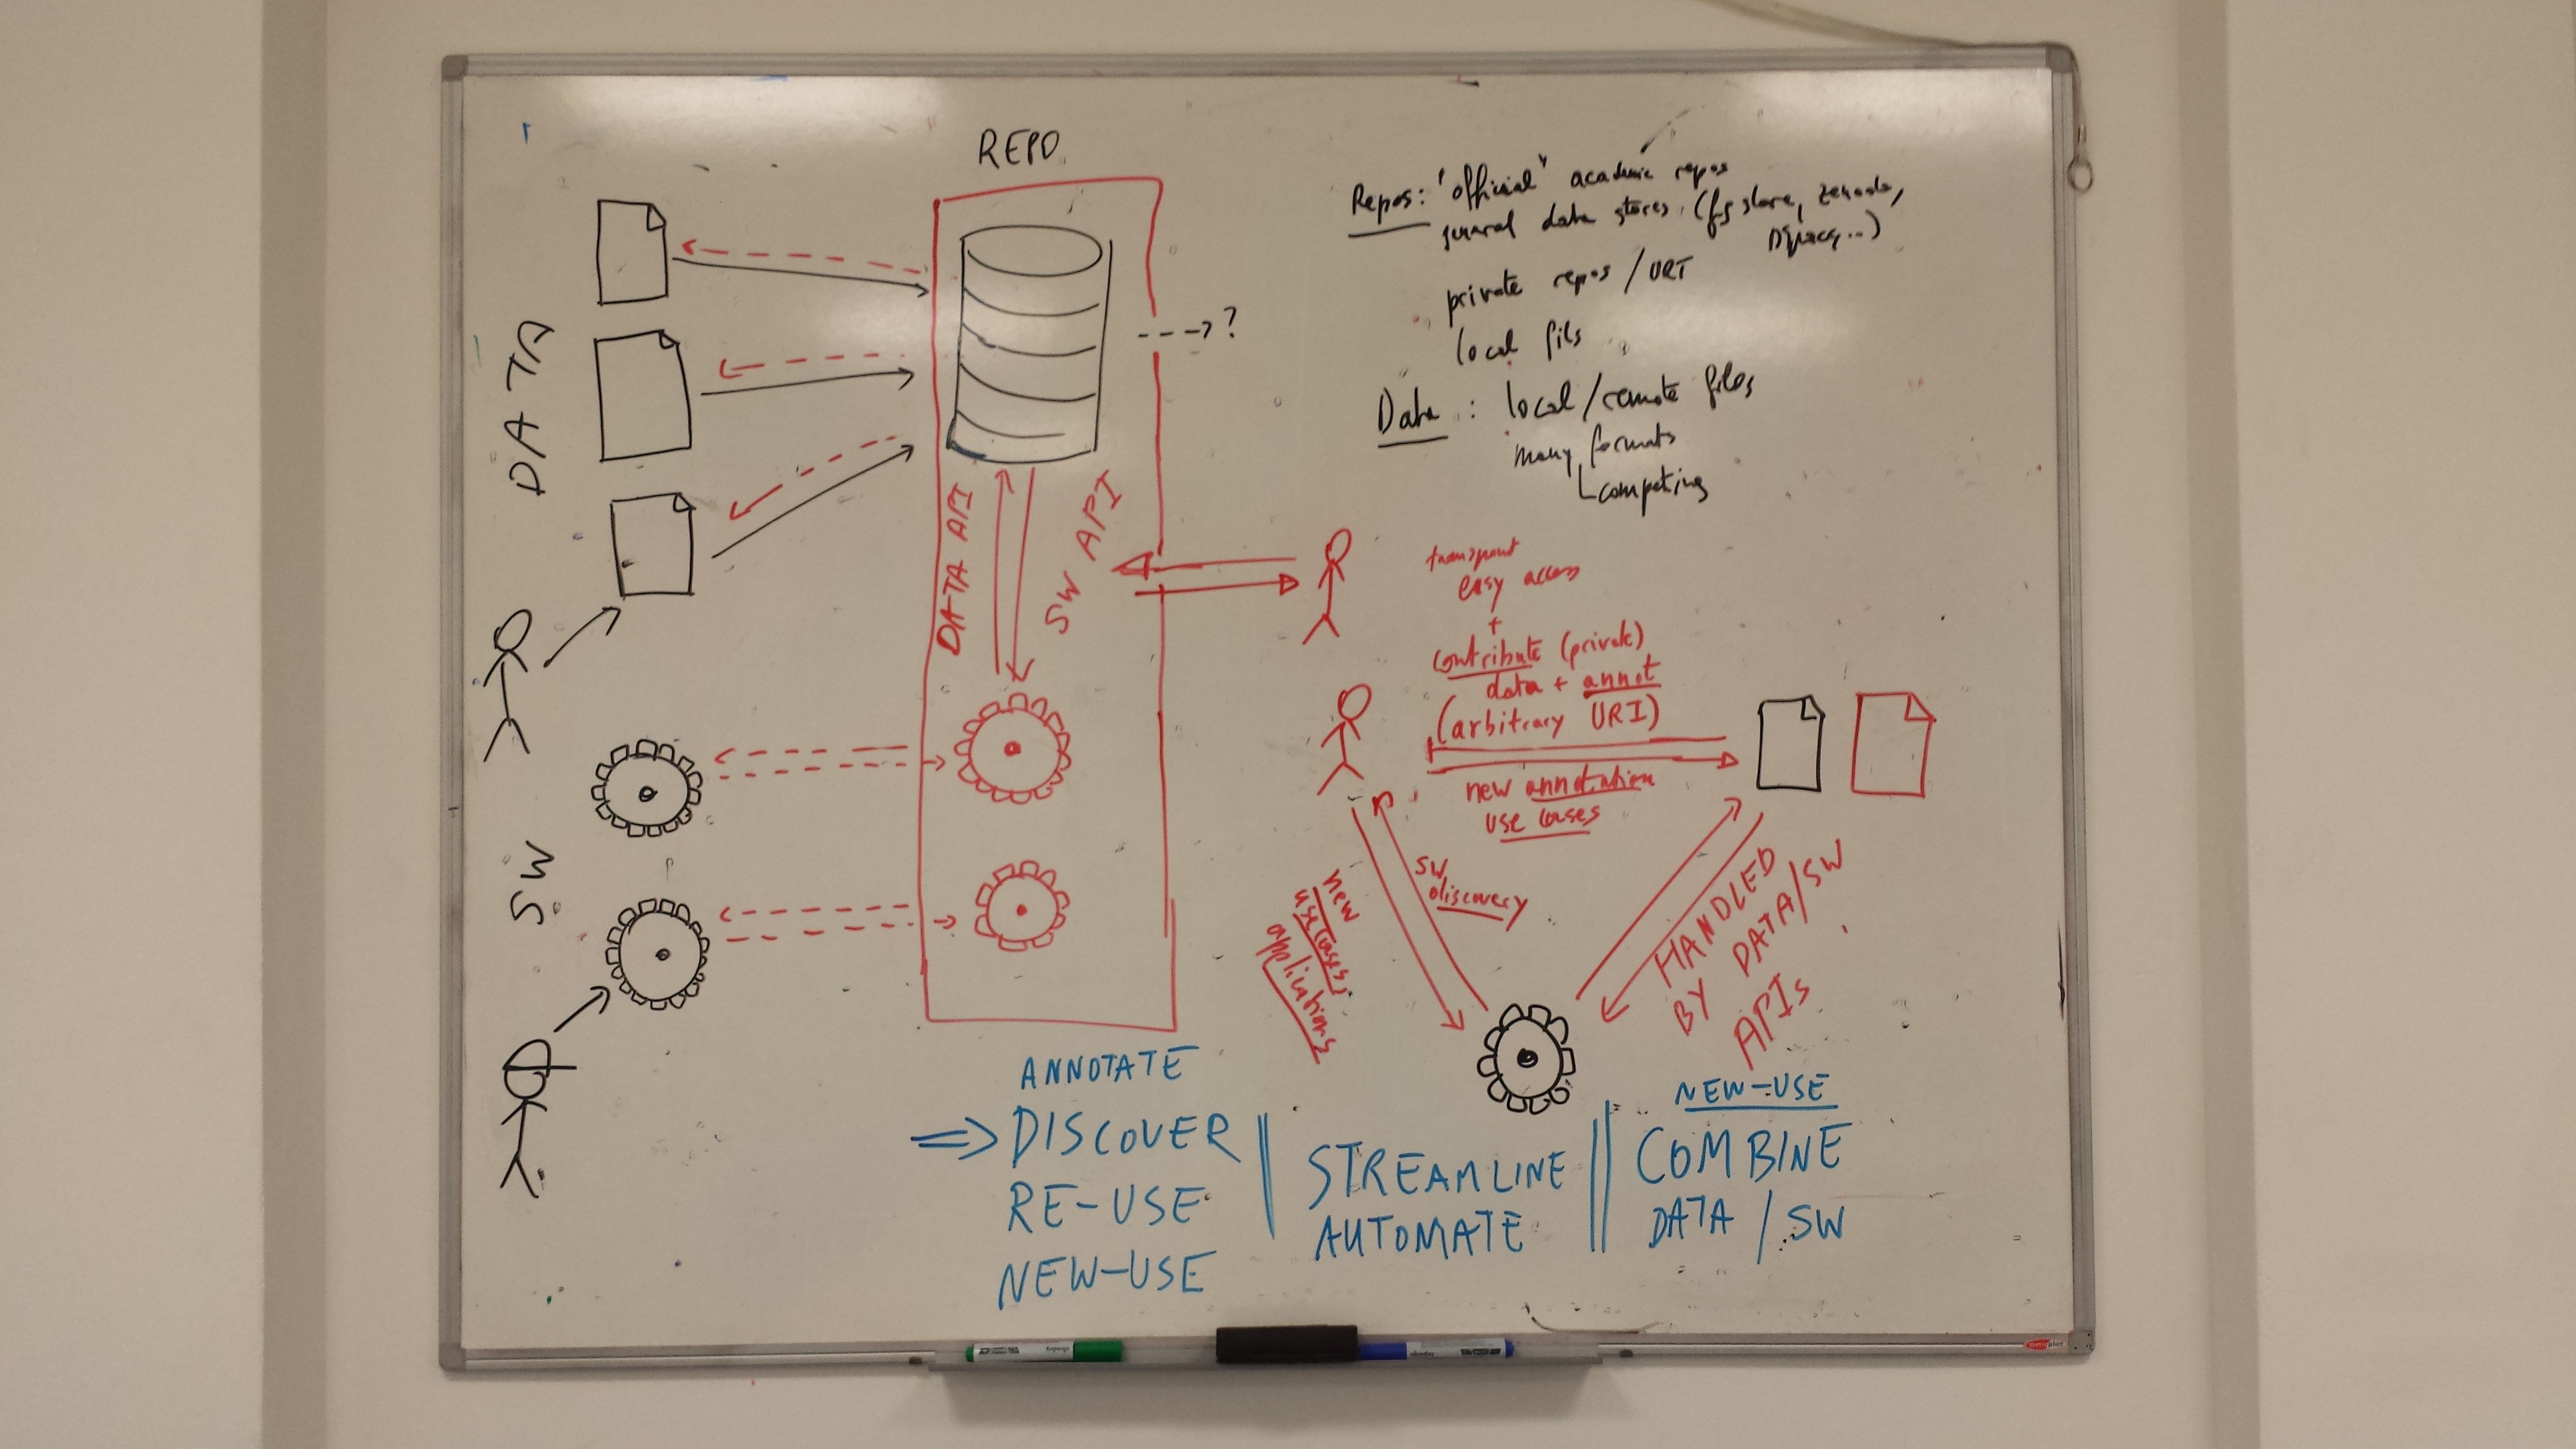 REPO
DATA
SW
DATA API
SW API
?
Repos: 'official" academic repos
general data stores (fgshare, zenodo,
DSpace, ...)
private repos / URI
local fils
Data : local/remote files
many formats
competing
easy access
+
contribute (private)
data + annot
(arbitrary URI)
new annotation
use cases
SW
discovery
new
usecases,
applications
HANDLED
BY DATA/SW
APIs
ANNOTATE
=> DISCOVER
RE-USE
NEW-USE
STREAMLINE
AUTOMATE
NEW-USE
COMBINE
DATA / SW